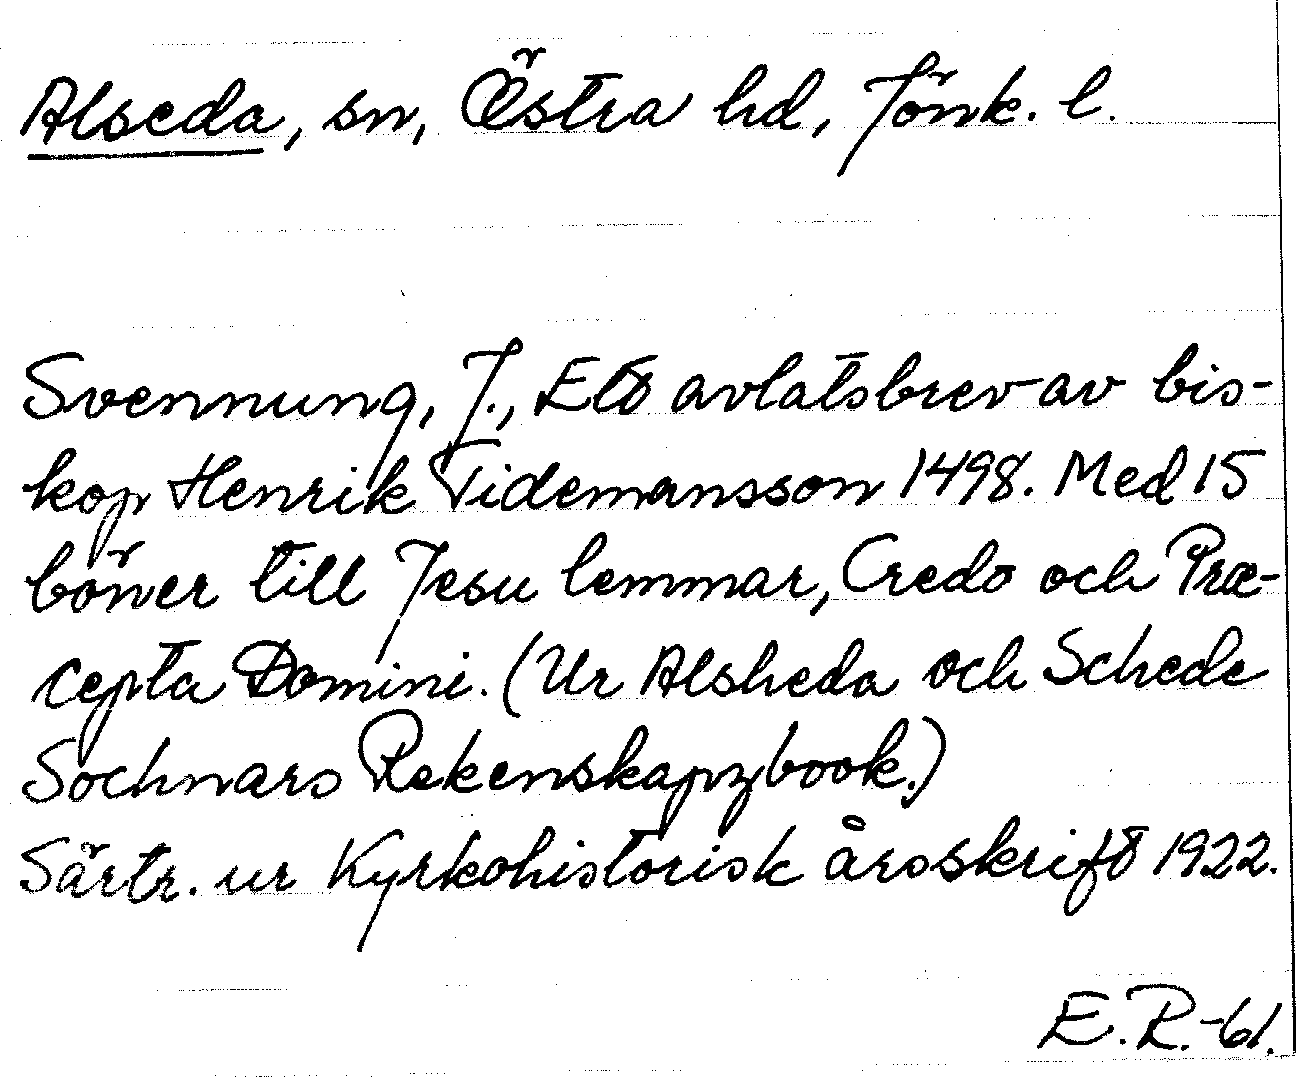 Alseda, sn, Östra hd, Jönk. l.
Svennung, J., Ett avlatsbrev av bis-
kop Henrik Tidemansson 1498. Med 15
böner till Jesu lemmar, Credo och Præ-
cepta Domini. (Ur Alsheda och Schede
Sochnars Rekenskapzbook.)
Särtr. ur Kyrkohistorisk årsskrift 1922.
E.R.-61.